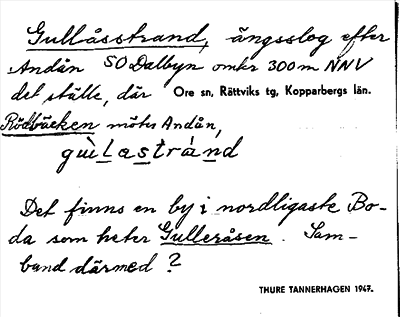 Gullåsstrand, ängsslog efter
Andån SO Dalbyn omkr 300 m NNV
det ställe, där Ore sn, Rättviks tg, Kopparbergs län.
Rödbäcken möter Andån,
gu̇̀lastránd
Det finns en by i nordligaste Bo-
da som heter Gulleråsen. Sam-
band därmed?
THURE TANNERHAGEN 1947.